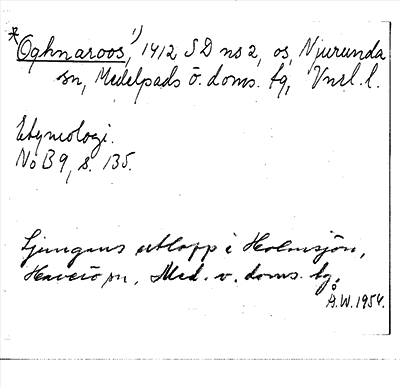 *Oghnaroos,¹) 1412 SD ns 2, os, Njurunda
sn, Medelpads ö. doms. tg, Vnrl. l.
Etymologi.
NoB 9, s. 135.
Ljungans utlopp i Holmsjön,
Haverö sn, Med. v. doms. tg.
Å.W. 1954.